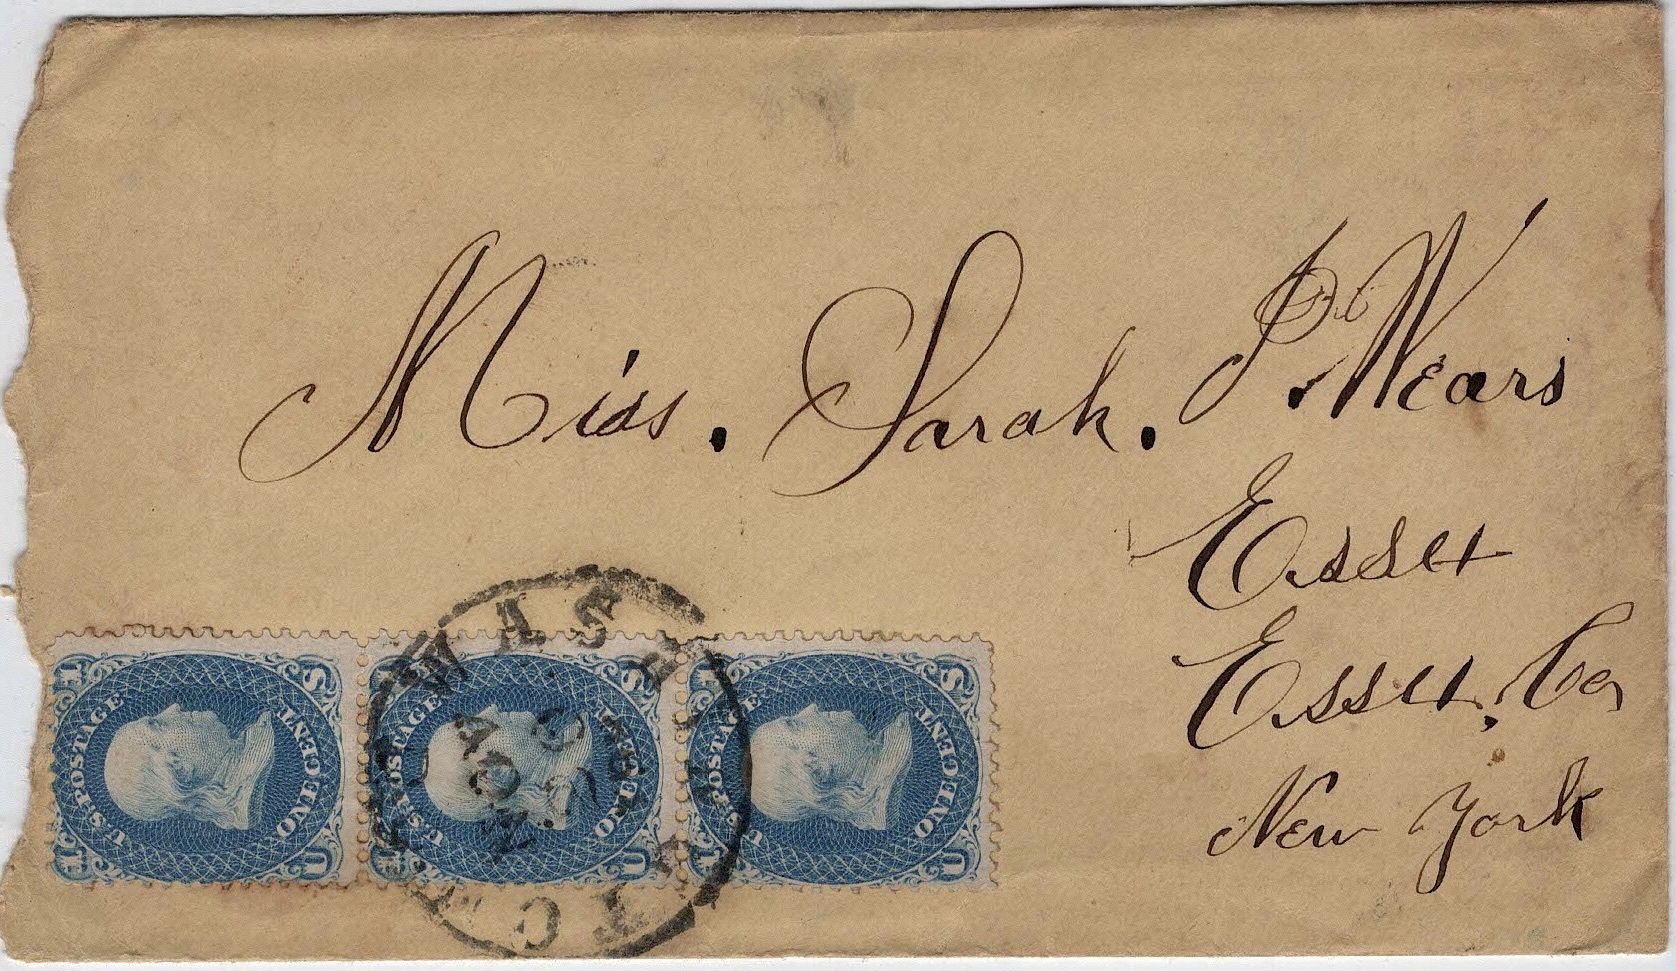 Miss. Sarah. P. Wears
Essex
Essex, Co
New York
U.S. POSTAGE
ONE CENT.
U S
1 1
U.S. POSTAGE
ONE CENT.
U S
1 1
U.S. POSTAGE
ONE CENT.
U S
1 1
WASHINGTON
NOV